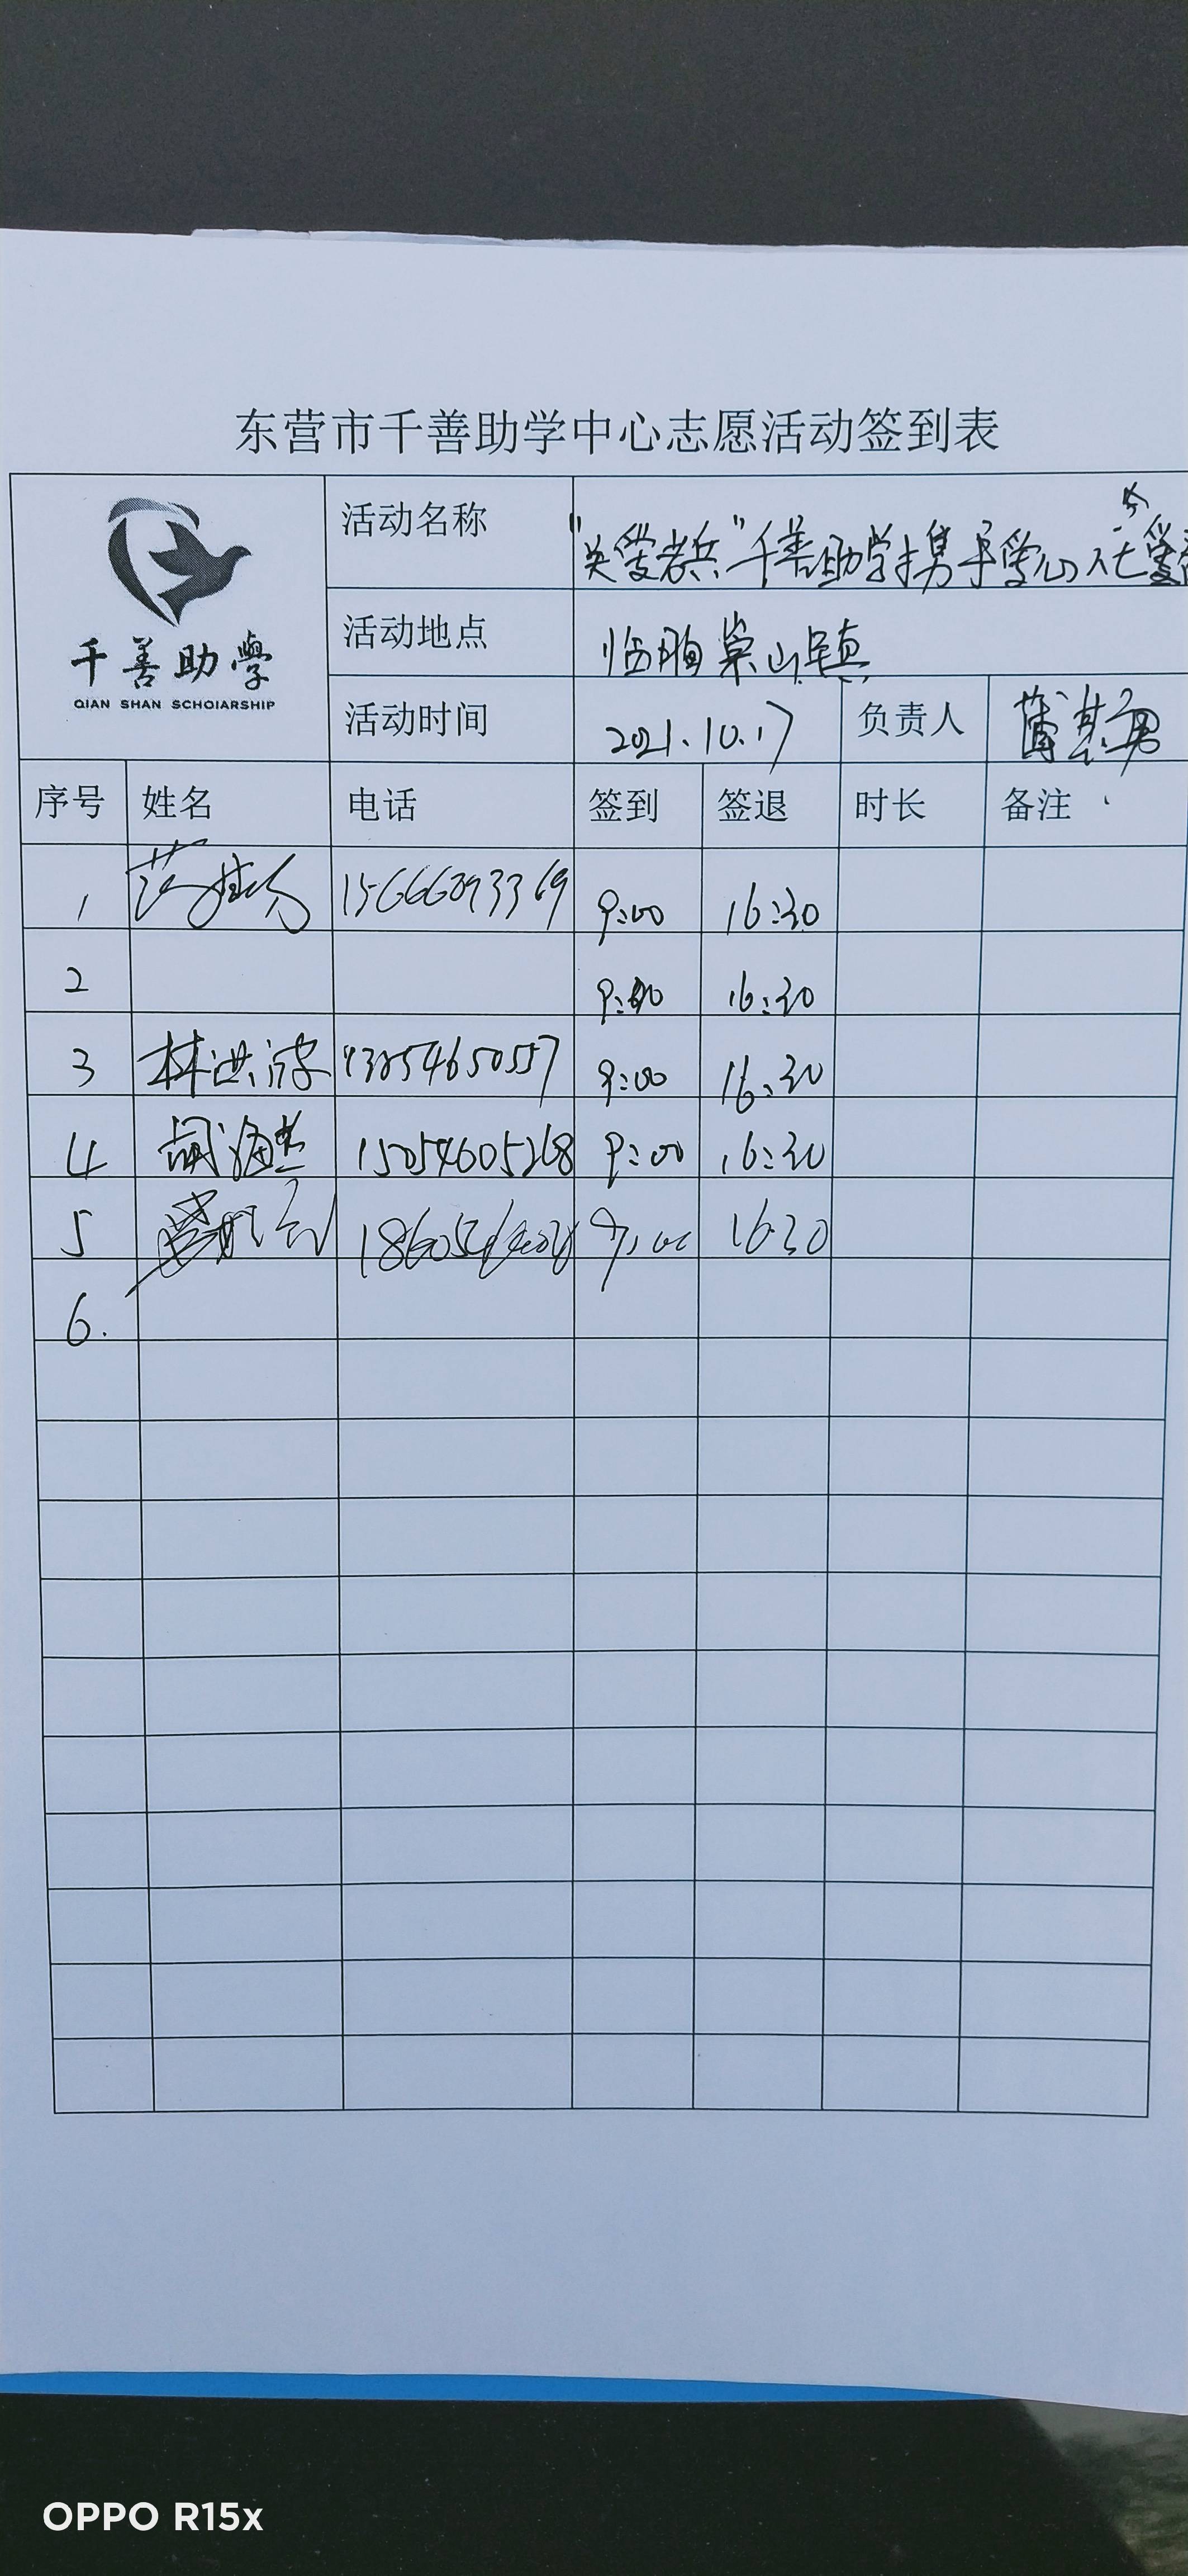 东营市千善助学中心志愿活动签到表
千善助學
QIAN SHAN SCHOIARSHIP
活动名称 "关爱老兵"千善助学携手爱心人士
活动地点 临朐 山镇
活动时间 2021.10.17 负责人
序号 姓名 电话 签到 签退 时长 备注
1 15666093369 9:00 16:30
2 9:00 16:30
3 林洪 13054650557 9:00 16:30
4 15054605268 9:00 16:30
5 9:00 16:30
6.
OPPO R15x